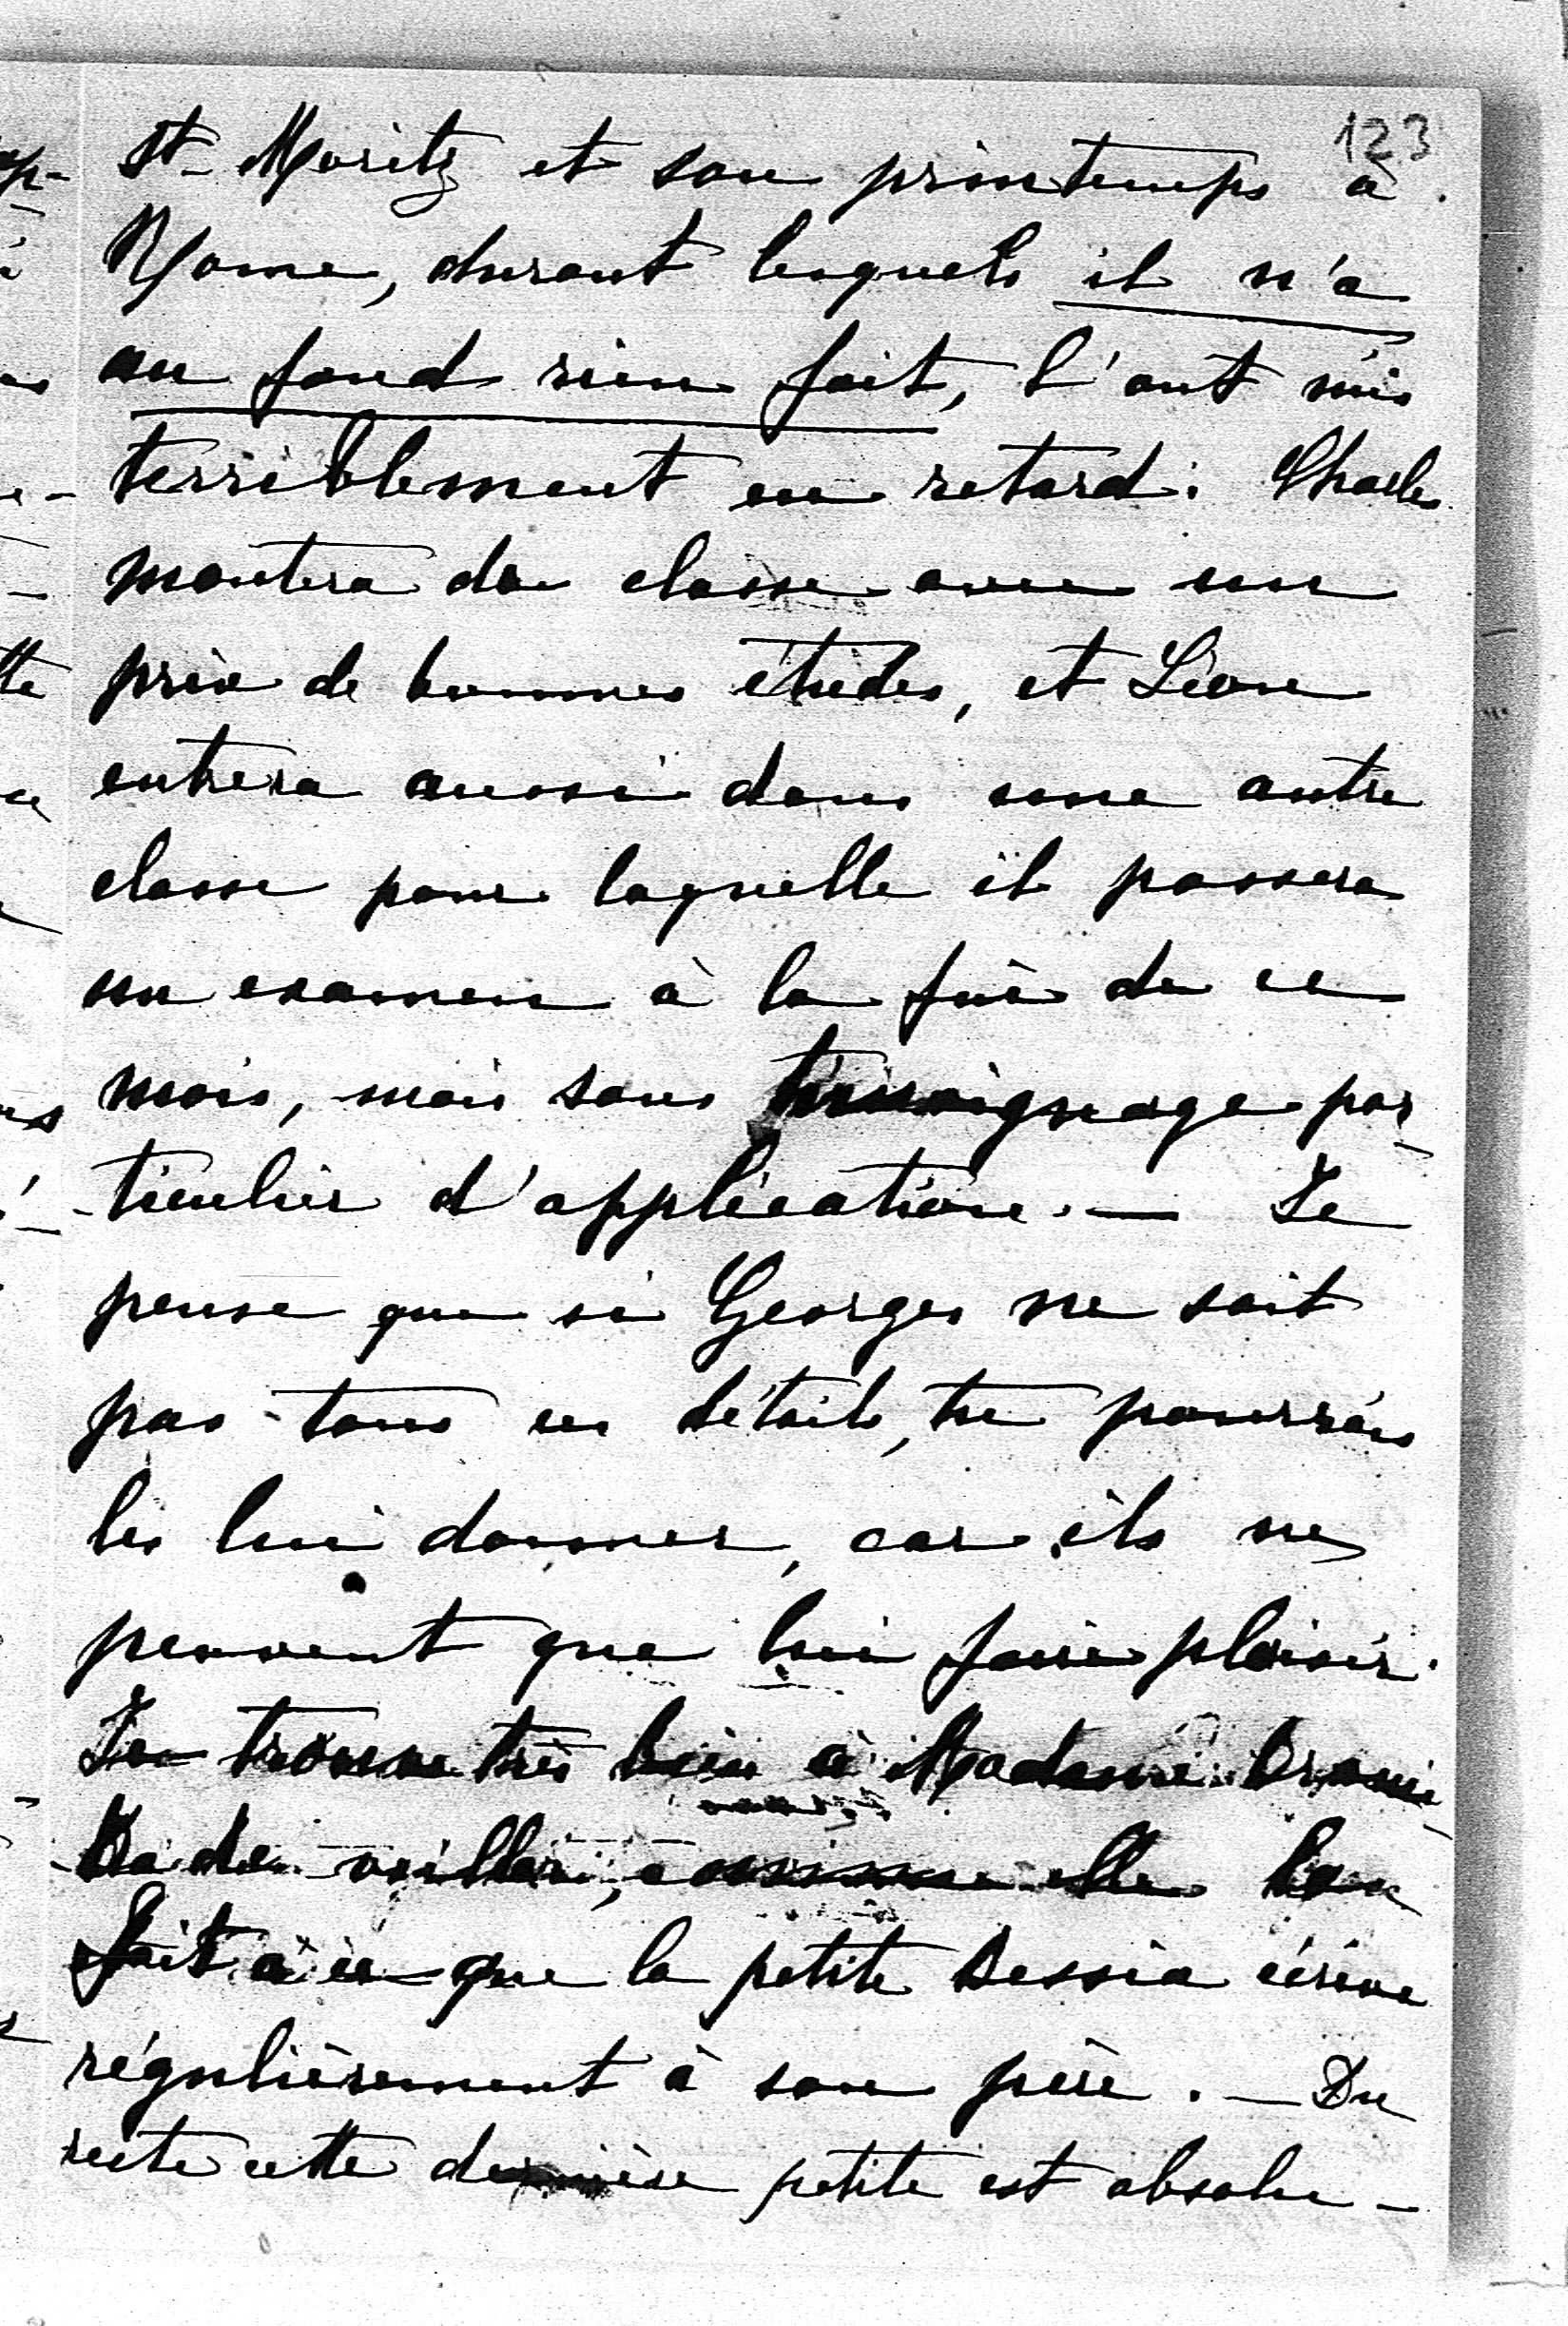 123
St-Moritz et son printemps à
Rome, durant lesquels il n'a
au fond rien fait, l'ont mis
terriblement en retard: Charles
montera de classe avec un
prix de bonnes études, et Léon
entrera aussi dans une autre
classe pour laquelle il passera
un examen à la fin de ce
mois, mais sans témoignage par-
ticulier d'application. — Je
pense que si Georges ne sait
pas tous ces détails, tu pourrais
les lui donner, car ils ne
peuvent que lui faire plaisir.
Je trouve très bien à Madame
de veiller, comme elle le
fait à ce que la petite Bessie écrive
régulièrement à son père. — Du
reste cette dernière petite est absolu-